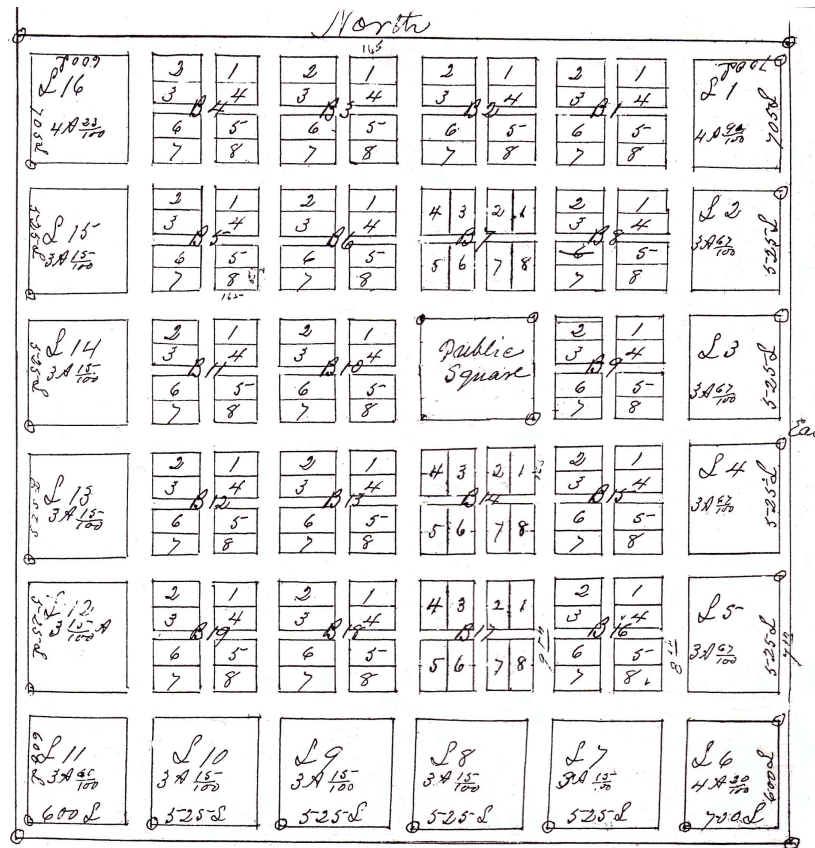 North
165
600 L
L 16
705 L
4 A 23/100
2 1
3 4
B 4
6 5
7 8
2 1
3 4
B 3
6 5
7 8
2 1
3 4
B 2
6 5
7 8
2 1
3 4
B 1
6 5
7 8
700 L
L 1
705 L
4 A
L 15
525 L
3 A 15/100
2 1
3 4
B 5
6 5
7 8
165
2 1
3 4
B 6
6 5
7 8
4 3 2 1
B 7
5 6 7 8
2 1
3 4
B 8
6 5
7 8
L 2
3 A 67/100
525 L
L 14
525 L
3 A 15/100
2 1
3 4
B 11
6 5
7 8
2 1
3 4
B 10
6 5
7 8
Public
Square
2 1
3 4
B 9
6 5
7 8
L 3
3 A 67/100
525 L
Eas
L 13
3 A 15/100
2 1
3 4
B 12
6 5
7 8
2 1
3 4
B 13
6 5
7 8
4 3 2 1
B 14
5 6 7 8
2 1
3 4
B 15
6 5
7 8
L 4
3 A 67/100
525 L
L 12
525 L
3 15/100 A
2 1
3 4
B 19
6 5
7 8
2 1
3 4
B 18
6 5
7 8
4 3 2 1
B 17
5 6 7 8
2 1
3 4
B 16
6 5
7 8
L 5
3 A 67/100
525 L
L 11
608 L
3 A
600 L
L 10
3 A 15/100
525 L
L 9
3 A 15/100
525 L
L 8
3 A 15/100
525 L
L 7
3 A 15/100
525 L
L 6
4 A 20/100
600 L
700 L